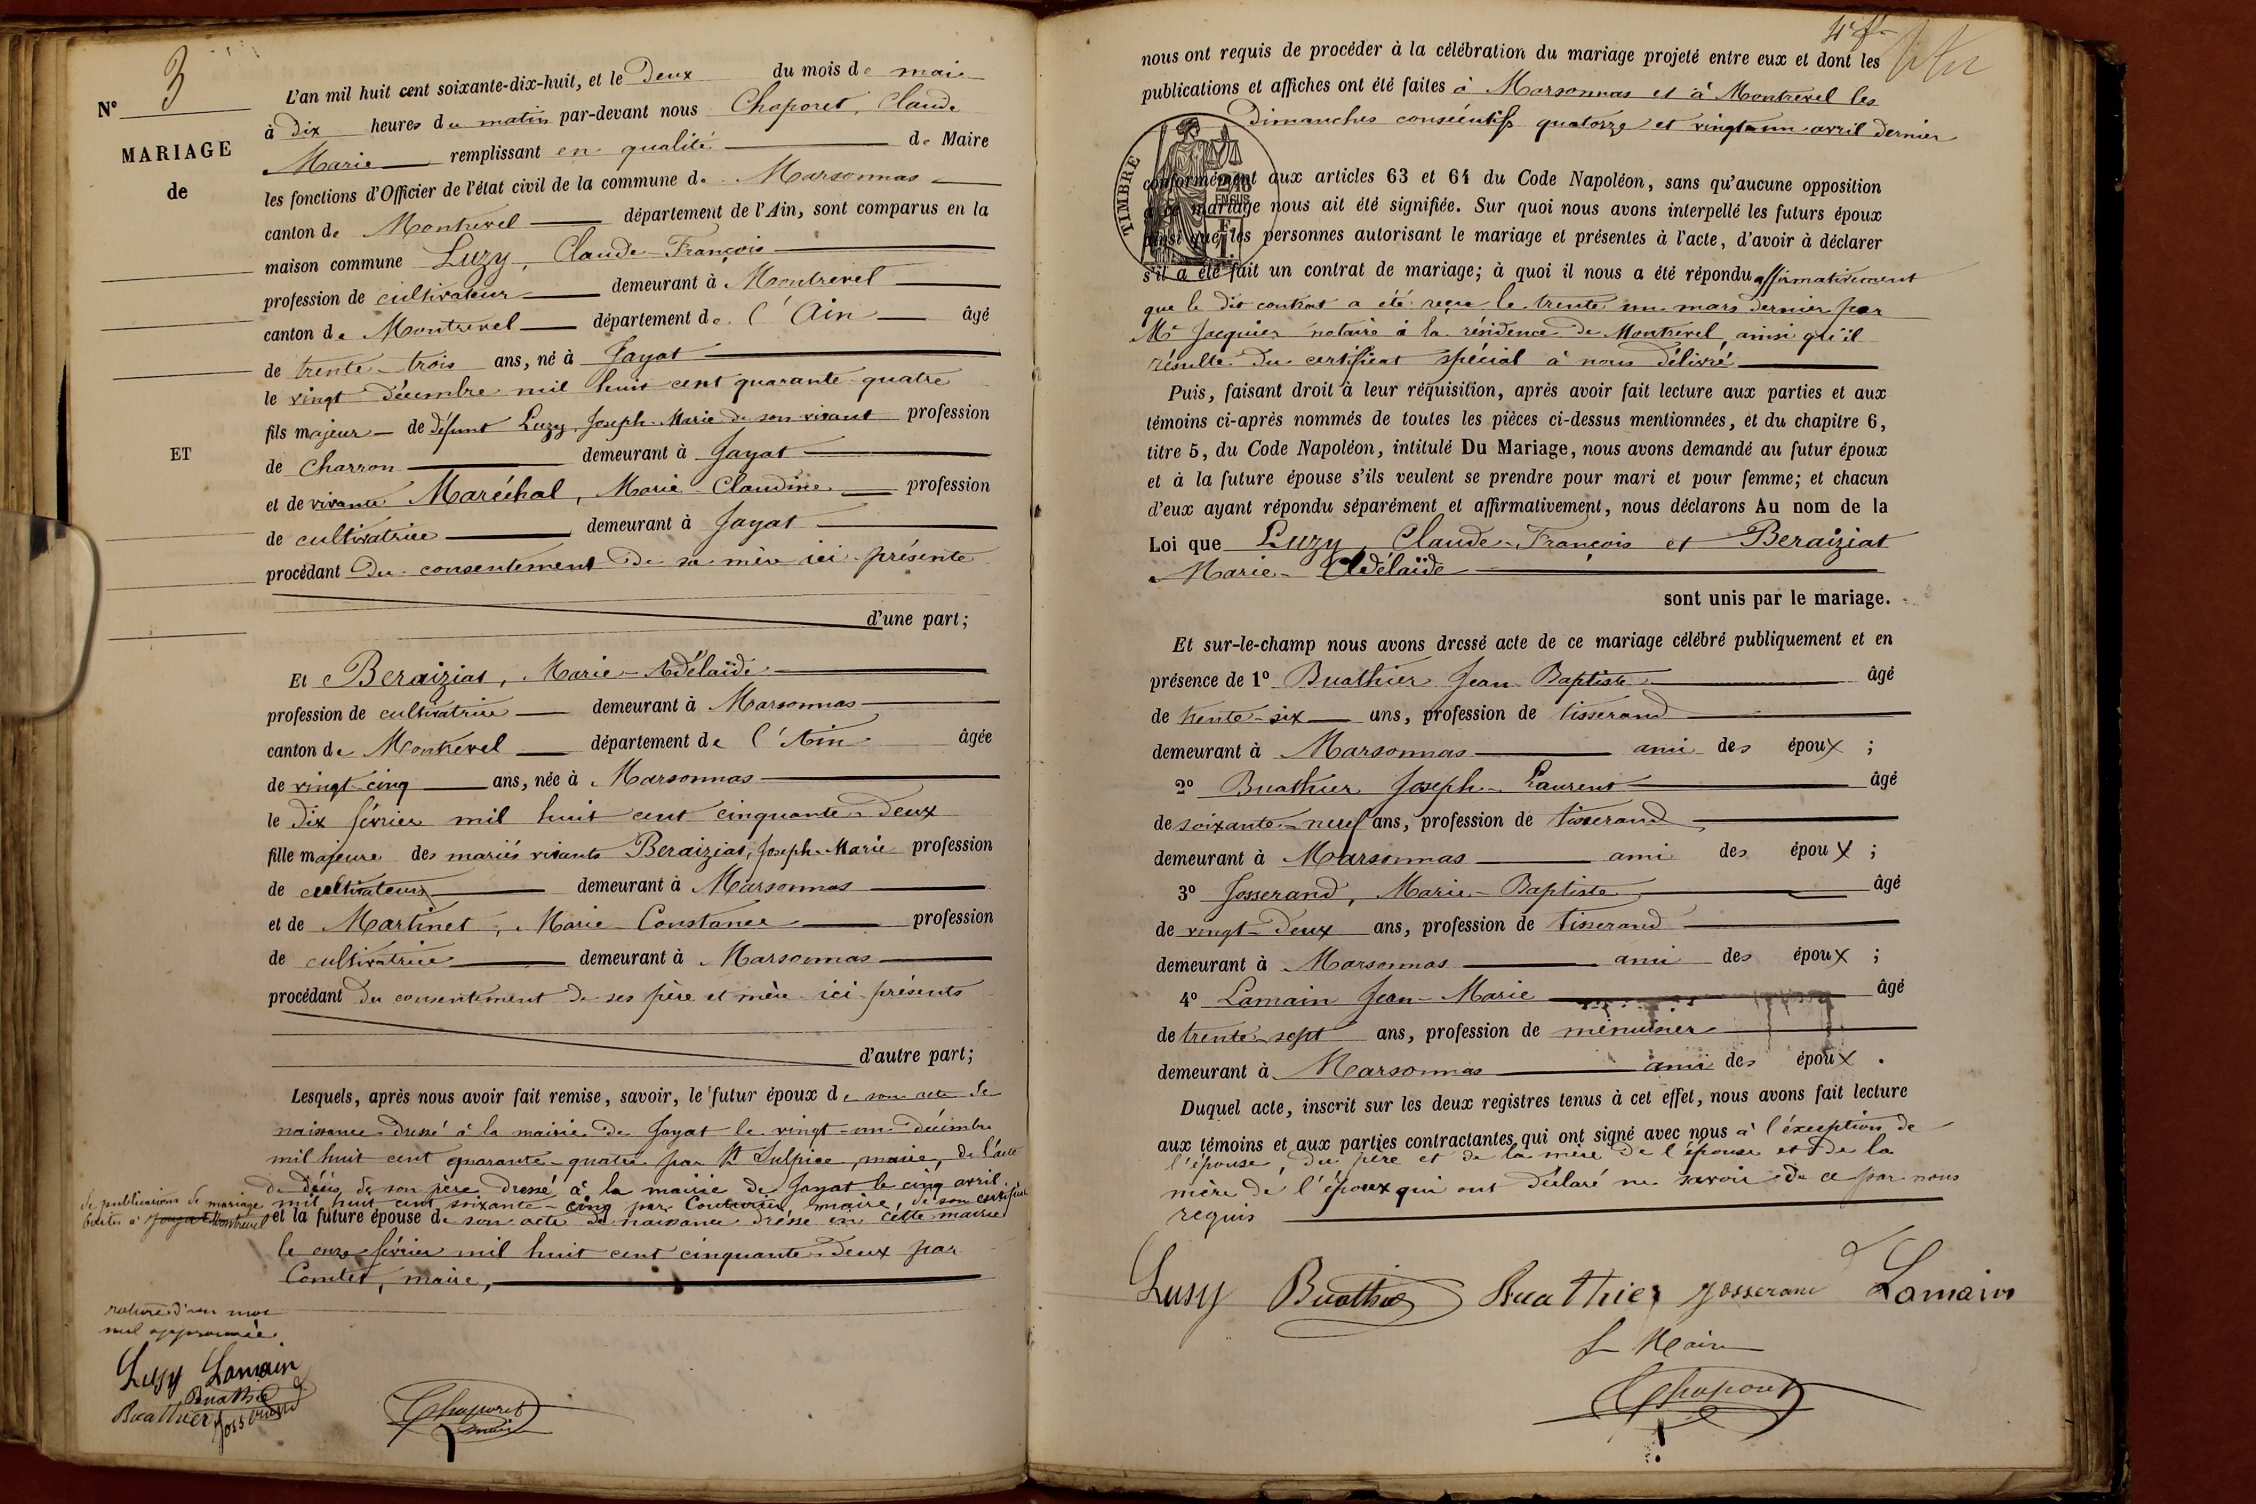 N° 3
MARIAGE
de
ET
L'an mil huit cent soixante-dix-huit, et le Deux du mois de mai
à Dix heures du matin par-devant nous Chaporet, Claude
Marie remplissant en qualité de Maire
les fonctions d'Officier de l'état civil de la commune de Marsonnas
canton de Montrevel département de l'Ain, sont comparus en la
maison commune Luzy, Claude-François
profession de cultivateur demeurant à Montrevel
canton de Montrevel département de l'Ain âgé
de trente-trois ans, né à Jayat
le vingt Décembre mil huit cent quarante-quatre
fils majeur de défunt Luzy, Joseph-Marie de son vivant profession
de Charron demeurant à Jayat
et de vivante Maréchal, Marie-Claudine profession
de cultivatrice demeurant à Jayat
procédant Du consentement De sa mère ici présente
d'une part;
Et Beraiziat, Marie-Adélaïde
profession de cultivatrice demeurant à Marsonnas
canton de Montrevel département de l'Ain âgée
de vingt-cinq ans, née à Marsonnas
le Dix février mil huit cent cinquante-Deux
fille majeure des mariés vivants Beraiziat, Joseph-Marie profession
de cultivateur demeurant à Marsonnas
et de Martinet, Marie Constance profession
de cultivatrice demeurant à Marsonnas
procédant Du consentement De ses père et mère ici présents
d'autre part;
Lesquels, après nous avoir fait remise, savoir, le futur époux de son acte De
naissance Dressé à la mairie De Jayat le vingt-un Décembre
mil huit cent quarante-quatre par St Sulpice, maire, De l'acte
de Décès de son père Dressé à la mairie De Jayat le cinq avril
mil huit cent soixante-cinq par Couturier, maire, De son certificat
de publications de mariage
délivré à Jayat Montrevel
et la future épouse de son acte de naissance dressé en cette mairie
le onze février mil huit cent cinquante-Deux par
Comtet, maire,
rature d'un mot
nul approuvée
Lusy Lamain
Buathier
Buathier Josserand
Chaporet
maire
4e f.
nous ont requis de procéder à la célébration du mariage projeté entre eux et dont les
publications et affiches ont été faites à Marsonnas et à Montrevel les
Dimanches consécutifs quatorze et vingt un avril Dernier
TIMBRE
conformément aux articles 63 et 64 du Code Napoléon, sans qu'aucune opposition
à ce mariage nous ait été signifiée. Sur quoi nous avons interpellé les futurs époux
ainsi que les personnes autorisant le mariage et présentes à l'acte, d'avoir à déclarer
s'il a été fait un contrat de mariage; à quoi il nous a été répondu affirmativement
que le dit contrat a été reçu le trente un mars Dernier par
Me Jacquier notaire à la résidence De Montrevel, ainsi qu'il
résulte Du certificat spécial à nous Délivré
Puis, faisant droit à leur réquisition, après avoir fait lecture aux parties et aux
témoins ci-après nommés de toutes les pièces ci-dessus mentionnées, et du chapitre 6,
titre 5, du Code Napoléon, intitulé Du Mariage, nous avons demandé au futur époux
et à la future épouse s'ils veulent se prendre pour mari et pour femme; et chacun
d'eux ayant répondu séparément et affirmativement, nous déclarons Au nom de la
Loi que Luzy, Claude-François et Beraiziat
Marie-Adélaïde
sont unis par le mariage.
Et sur-le-champ nous avons dressé acte de ce mariage célébré publiquement et en
présence de 1° Buathier Jean-Baptiste âgé
de trente-six ans, profession de tisserand
demeurant à Marsonnas ami des époux ;
2° Buathier Joseph-Laurent âgé
de soixante-neuf ans, profession de tisserand
demeurant à Marsonnas ami des époux ;
3° Josserand, Marie-Baptiste âgé
de vingt-Deux ans, profession de tisserand
demeurant à Marsonnas ami des époux ;
4° Lamain Jean-Marie âgé
de trente-sept ans, profession de menuisier
demeurant à Marsonnas ami des époux .
Duquel acte, inscrit sur les deux registres tenus à cet effet, nous avons fait lecture
aux témoins et aux parties contractantes qui ont signé avec nous à l'éxception de
l'épouse, Du père et de la mère De l'épouse et De la
mère De l'époux qui ont Déclaré ne savoir De ce par nous
requis
Lusy Buathier Buathier Josserand Lamain
Le Maire
Chaporet